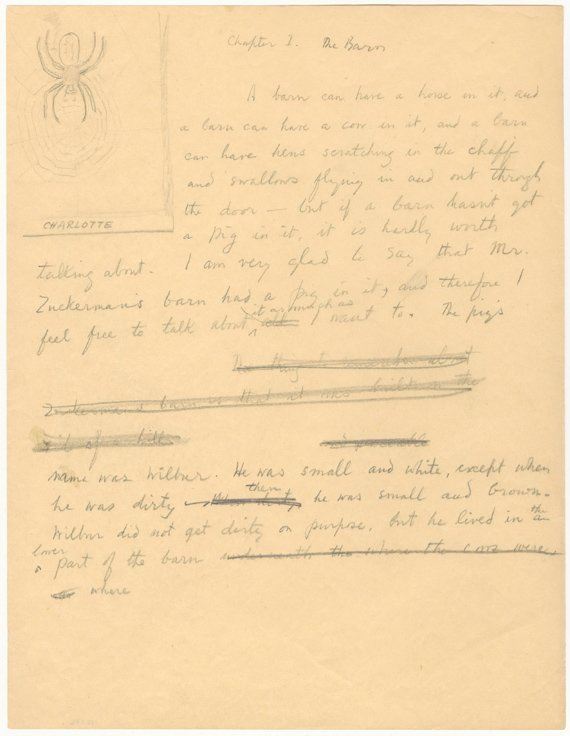 Chapter I. The Barn
A barn can have a horse in it, and
a barn can have a cow in it, and a barn
can have hens scratching in the chaff
and swallows flying in and out through
the door — but if a barn hasn't got
a pig in it, it is hardly worth
CHARLOTTE
talking about. I am very glad to say that Mr.
Zuckerman's barn had a pig in it, and therefore I
feel free to talk about it as much as I want to. The pig's
The thing to remember about
Zuckerman's barn is that it was built on the
side of a hill
name was Wilbur. He was small and white, except when
he was dirty — then he was small and brown.
Wilbur did not get dirty on purpose, but he lived in the
lower part of the barn underneath the where the cows were
where